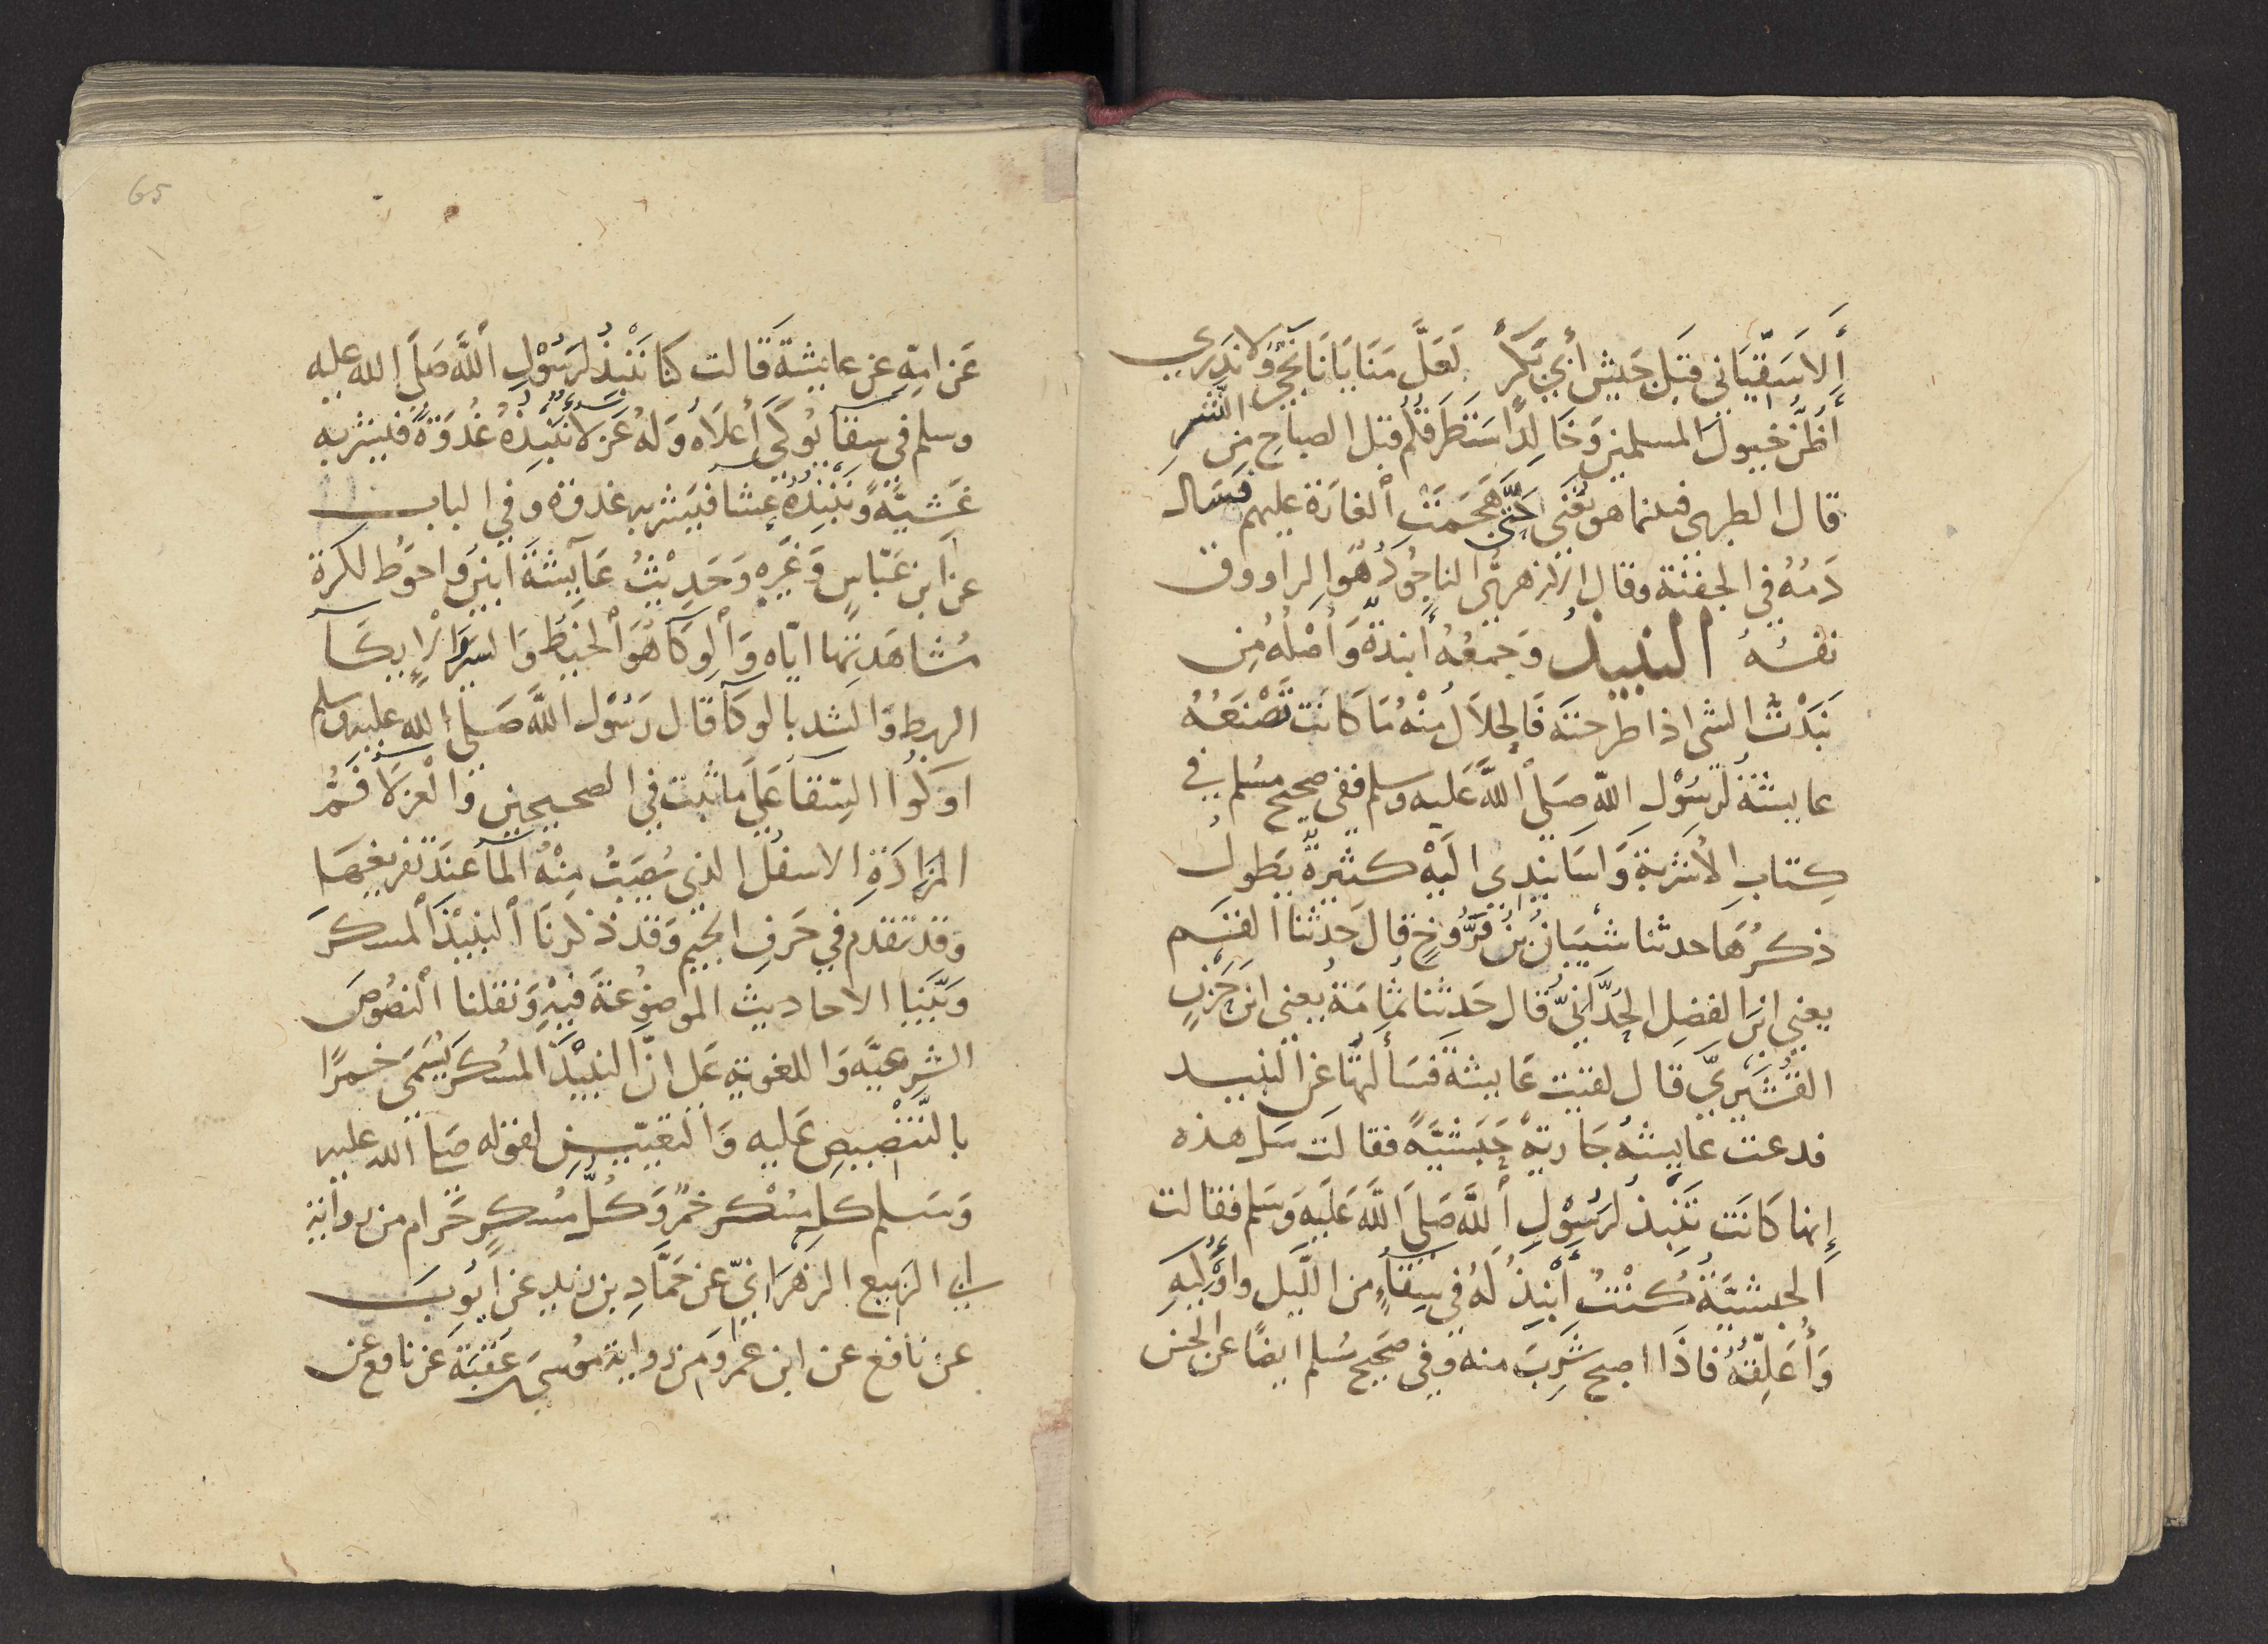 أَلَا سَقِّيَانِي قَبْلَ جَيْشِ أَبِي بَكْرٍ لَعَلَّ مَنَايَانَا نَجِيْ وَلَا نَدْرِي
أَظُنُّ خيولَ المسلمين وَخَالِدًا ستطرقكم قبل الصباحِ من النشرِ
قال الطبرى فبينما هو يُغَنِي حَتَّى هَجَمَتِ الْغارَة عليهم فَسَال
دَمُهُ في الجفنة وقال الزهرىُّ الناجُودُ هُوَ الراووق
نفسُهُ النبيذُ وَجمعُهُ أَنبذةٌ وَأَصْلُهُ مِن
نَبَذْتُ الشى اذا طرحته فَالحلَالُ مِنْهُ مَا كَانَت تَصْنَعُهُ
عايشةُ لرسُوْلِ اللهِ صَلَّى اللَّه عَليه وسلم ففى صحيح مسُلم في
كِتَابِ الْأشربةِ وَاسَانيدِى الَيْه كثيرةٌ يَطولُ
ذكرُهَا حدثنا شَيبَانُ بنُ فَرُّوخٍ قال حدثنا القسم
يعنى ابنَ الفضلِ الحُدَّانِىَّ قال حَدثنا ثمَامَة يعنى ابن حَزنٍ
القُشَيْرِيَّ قال لقيت عَايشة فسَألتُهَا عن النبيـد
فدعت عايشةُ جَاريَةً حَبَشيَّةً فقالت سَل هذه
إنها كَانَت تَنْبِذُ لرسُوْلِ اللَّه صَلَّى اللَّه عَلَيهِ وَسَلم فقالت
الحبشيَّةُ كُنْتُ أنْبِذُ لَهُ في سِقَاءٍ من اللَّيل واوكيهِ
وَأُعَلِقُهُ فَاذَا اصبح شَرِبَ منه وفي صَحيح مسُلم ايضًا عن الحسن
عَن امّهِ عن عايشة قَالت كنا نَنْبِذُ لرَسُوْلِ اللَّه صَلَّى الله عليه
وسلم في سِقَآ يُوكَى أَعلَاه وَلهُ عَزلَآ نَنْبِذُهُ غُدوَةً فيشربه
عَشِيَّةً وَنَنْبِذُهُ عِشآ فيشربه غدوة وفي الباب
عن ابن عَبّاسٍ وَغَيرِهِ وَحَدِيْثُ عَآيشَةَ ابينَ واحوَط لكثرة
مُشَاهَدتها ايّاه وَالْوِكَآ هُوَ الْخيطُ وَالسَيرُ الْإيكَآ
الربط وَالشد بالوكآ قال رَسُوْل اللَّه صَلَّى الله عليه وسلم
اَوكُوا السِّقآ عَلَى مَا ثبت في الصحيحين وَالْعزلَآ فَمُ
المزَادَةِ الاسفلُ الذي يُصَبُّ مِنْهُ المآ عندَ تفريغهَا
وقد تقدم في حَرفِ الجيم وَقد ذكرنَا النبيذَ المسكرَ
وَبَيَّنَا الاحاديث الموضوعَة فيْهِ وَنقلنا النصُوص
الشرعيَّه وَاللغوية عَلى انَّ النبيذَ المسُكرَ يُسَمَى خمرًا
بالتَّنْصيصِ عَليه وَالتعيينِ لقوله صَلى اللّه عليه
وَسَلم كل مسُكر خمرٌ وَكلُّ مُسكرٍ حَرام من رواية
ابي الربيع الزهرَانيّ عن حَمَّادِ بن زيد عن ايُوبَ
عن نافع عن ابن عمر وَمن رواية مُوسَى بن عقبَة عن نافع عن
65